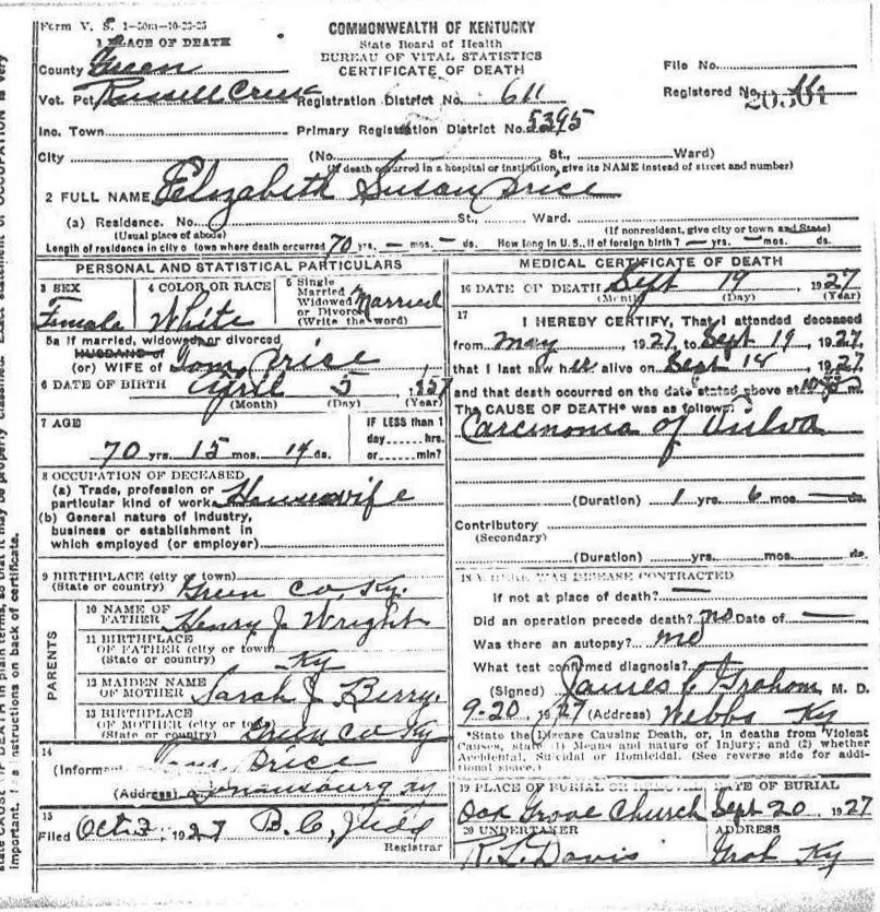 Form V. S. 1—50m—10-23-25
COMMONWEALTH OF KENTUCKY
State Board of Health
BUREAU OF VITAL STATISTICS
CERTIFICATE OF DEATH
1 PLACE OF DEATH
County Green
Vot. Pct Russell Creek Registration District No. 611
Inc. Town Primary Registration District No. 5395
City (No. St., Ward)
(If death occurred in a hospital or institution, give its NAME instead of street and number)
File No.
Registered No.
2 FULL NAME Elizabeth Susan Price
(a) Residence. No. St., Ward.
(Usual place of abode) (If nonresident, give city or town and State)
Length of residence in city o town where death occurred 70 yrs. — mos. — ds. How long in U. S., if of foreign birth? — yrs. — mos. ds.
PERSONAL AND STATISTICAL PARTICULARS
3 SEX Female
4 COLOR OR RACE White
5 Single Married Widowed or Divorced (Write the word) Married
5a If married, widowed, or divorced
HUSBAND of
(or) WIFE of Tom Price
6 DATE OF BIRTH April 5, 1857
(Month) (Day) (Year)
7 AGE
70 yrs. 15 mos. 14 ds.
IF LESS than 1
day...... hrs.
or...... min?
8 OCCUPATION OF DECEASED
(a) Trade, profession or
particular kind of work Housewife
(b) General nature of industry,
business or establishment in
which employed (or employer)
9 BIRTHPLACE (city or town)
(State or country) Green Co, Ky.
PARENTS
10 NAME OF
FATHER Henry J Wright
11 BIRTHPLACE
OF FATHER (city or town
(State or country) Ky
12 MAIDEN NAME
OF MOTHER Sarah J Berry.
13 BIRTHPLACE
OF MOTHER (city or to
(State or country) Green Co Ky
14
(Inform Tom Price
(Address)
15
Filed Oct 3, 1927 B. C, Judd
Registrar
MEDICAL CERTIFICATE OF DEATH
16 DATE OF DEATH Sept 19, 1927
(Month) (Day) (Year)
17
I HEREBY CERTIFY, That I attended deceased
from May, 1927, to Sept 19, 1927,
that I last saw her alive on Sept 18, 1927,
and that death occurred on the date stated above at m.
The CAUSE OF DEATH* was as follows:
Carcinoma of Vulva
(Duration) 1 yrs. 6 mos. — ds.
Contributory
(Secondary)
(Duration) yrs. mos. ds.
18 WHERE WAS DISEASE CONTRACTED
If not at place of death? —
Did an operation precede death? no Date of —
Was there an autopsy? no
What test confirmed diagnosis?
(Signed) James C Graham, M. D.
9-20, 1927 (Address) Webbs Ky
*State the Disease Causing Death, or, in deaths from Violent
Causes, state (1) Means and nature of Injury; and (2) whether
Accidental, Suicidal or Homicidal. (See reverse side for addi-
tional space.)
19 PLACE OF BURIAL OR REMOVAL DATE OF BURIAL
Oak Grove Church Sept 20 1927
20 UNDERTAKER ADDRESS
R. L. Davis Ky
important. See instructions on back of certificate.